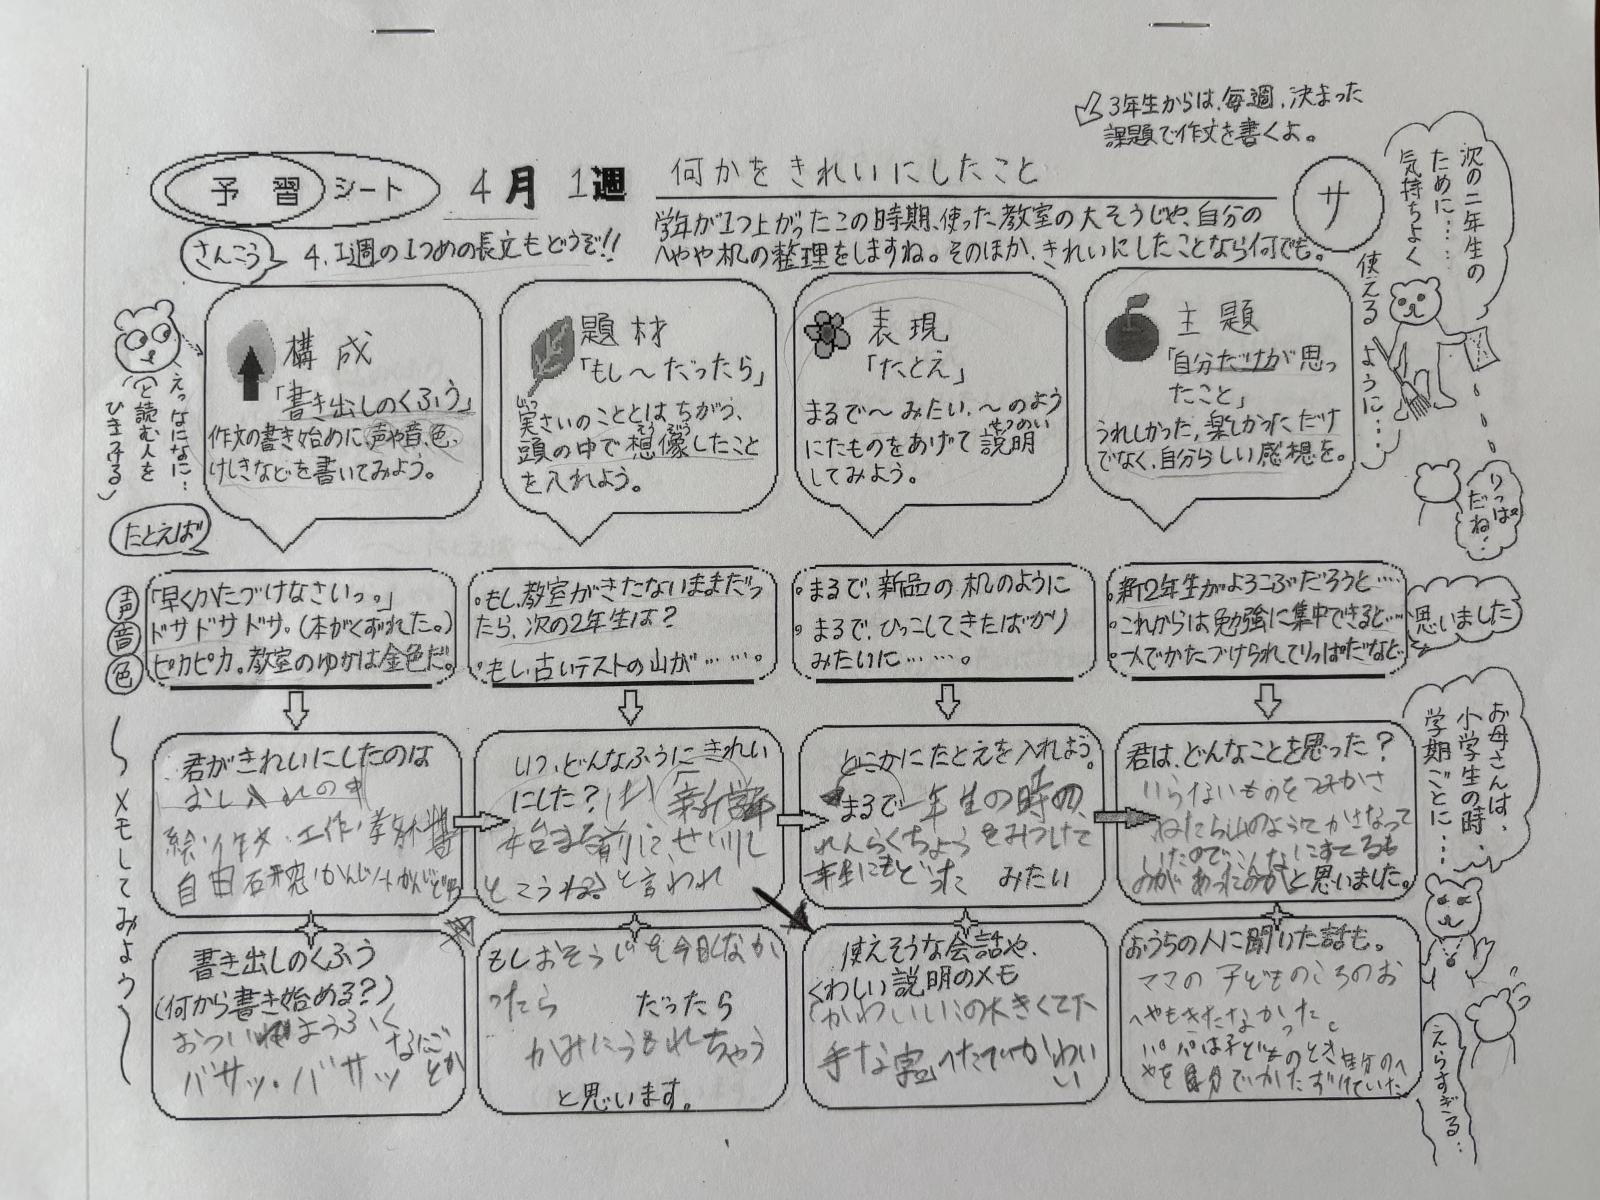 3年生からは、毎週、決まった
課題で作文を書くよ。
予習シート
4月1週
何かをきれいにしたこと
サ
学年が1つ上がったこの時期、使った教室の大そうじや、自分の
へやや机の整理をしますね。そのほか、きれいにしたことなら何でも。
さんこう
4.1週の1つめの長文もどうぞ!!
次の二年生の
ために……
気持ちよく
使える
ように……
りっぱ
だね!
えっなになに…
(と読む人を
ひきつける)
構成
「書き出しのくふう」
作文の書き始めに声や音、色、
けしきなどを書いてみよう。
題材
「もし〜だったら」
じっ
実さいのこととはちがう、
そうぞう
頭の中で想像したこと
を入れよう。
表現
「たとえ」
まるで〜みたい、〜のよう
せつめい
にたものをあげて説明
してみよう。
主題
「自分だけが思っ
たこと」
うれしかった、楽しかっただけ
でなく、自分らしい感想を。
たとえば
声
音
色
「早くかたづけなさいっ。」
ドサドサドサ。(本がくずれた。)
ピカピカ。教室のゆかは金色だ。
・もし、教室がきたないままだっ
たら、次の2年生は?
・もし、古いテストの山が……。
・まるで、新品の机のように
・まるで、ひっこしてきたばかり
みたいに……。
・新2年生がよろこぶだろうと……
・これからは勉強に集中できると……
・一人でかたづけられてりっぱだなと…
思いました
〜メモしてみよう〜
君がきれいにしたのは
おし入れの中
絵・作文・工作・教科書
自由研究・かんじノートかんじどりる
いつ、どんなふうにきれい
にした?
新学年
始まる前に、せいりし
とこうね。と言われ
どこかにたとえを入れよう。
まるで一年生の時の、
れんらくちょうをみつけて
年生にもどった みたい
君は、どんなことを思った?
いらないものをつみかさ
ねたら山のようにかさなって
いたのでこんなにすてるも
のがあったのかと思いました。
お母さんは、
小学生の時、
学期ごとに…
書き出しのくふう
(何から書き始める?)
ようふく
バサッ・バサッ
もしおそうじを今日しなか
ったら だったら
かみにうもれちゃう
と思います。
使えそうな会話や、
くわしい説明のメモ
かわいいの大きくて下
手な字 へたでかわい
い
おうちの人に聞いた話も。
ママの子どものころのお
へやもきたなかった。
パパは子どものとき自分のへ
やを自分でかたずけていた
えらすぎる…